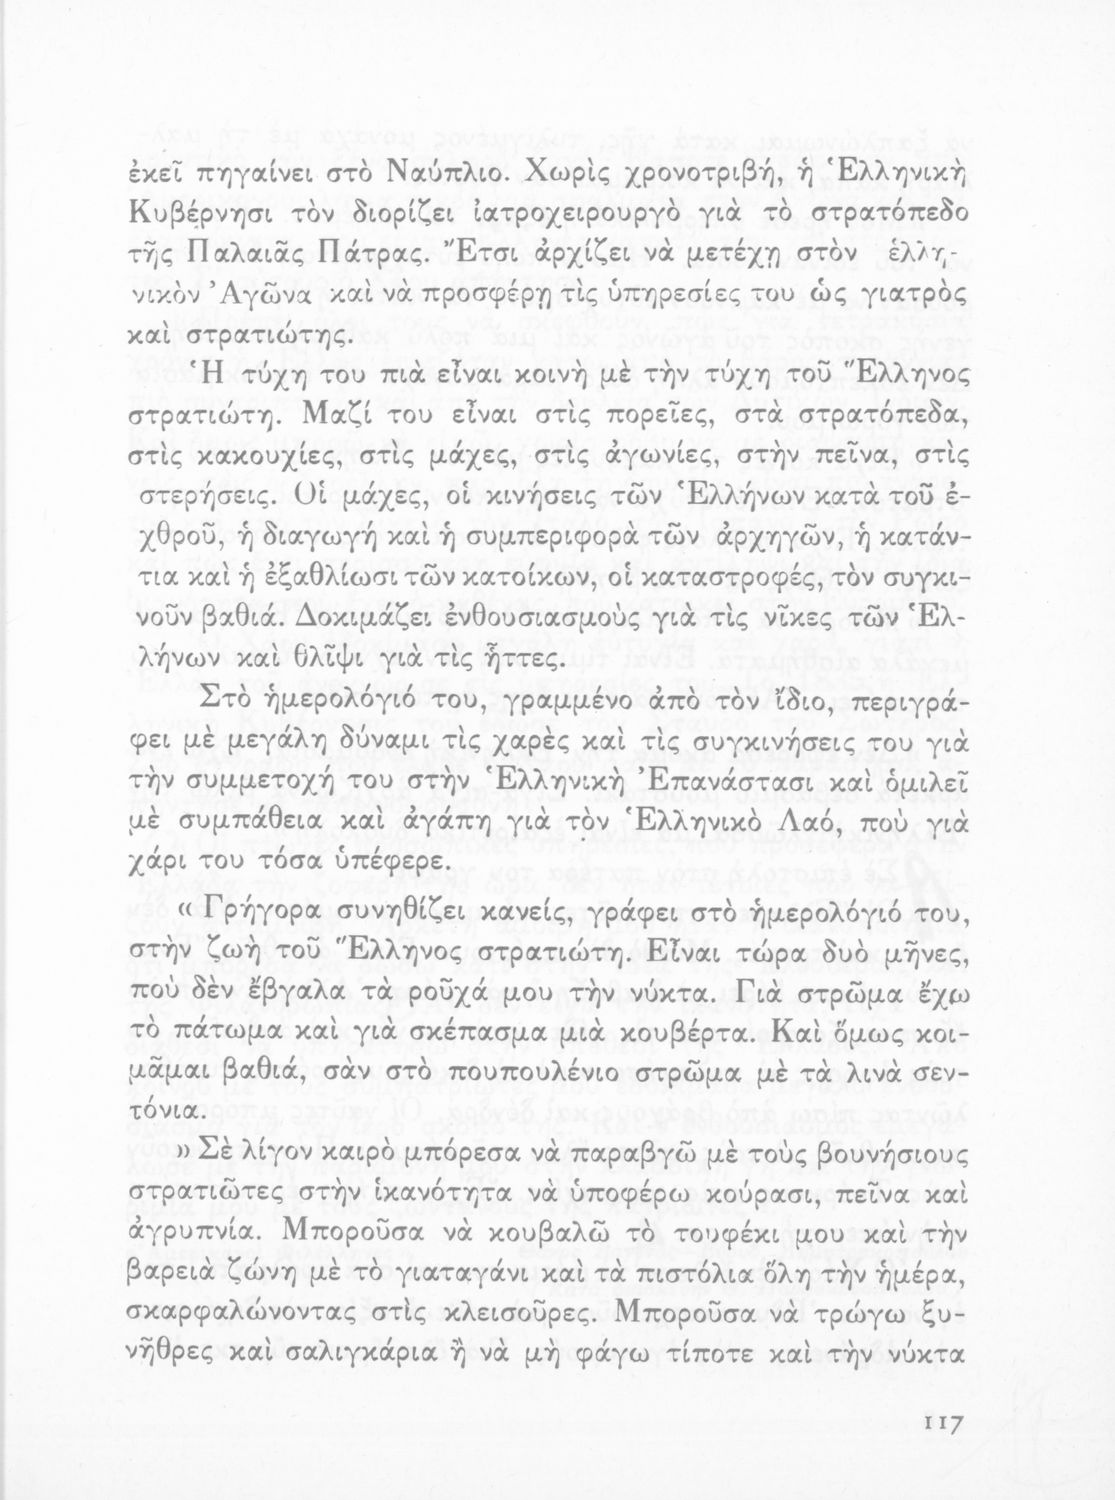 ἐκεῖ πηγαίνει στὸ Ναύπλιο. Χωρὶς χρονοτριβή, ἡ Ἑλληνικὴ
Κυβέρνησι τὸν διορίζει ἰατροχειρουργὸ γιὰ τὸ στρατόπεδο
τῆς Παλαιᾶς Πάτρας. Ἔτσι ἀρχίζει νὰ μετέχῃ στὸν ἑλλη-
νικὸν Ἀγῶνα καὶ νὰ προσφέρῃ τὶς ὑπηρεσίες του ὡς γιατρὸς
καὶ στρατιώτης.
Ἡ τύχη του πιὰ εἶναι κοινὴ μὲ τὴν τύχη τοῦ Ἕλληνος
στρατιώτη. Μαζί του εἶναι στὶς πορεῖες, στὰ στρατόπεδα,
στὶς κακουχίες, στὶς μάχες, στὶς ἀγωνίες, στὴν πεῖνα, στὶς
στερήσεις. Οἱ μάχες, οἱ κινήσεις τῶν Ἑλλήνων κατὰ τοῦ ἐ-
χθροῦ, ἡ διαγωγή καὶ ἡ συμπεριφορὰ τῶν ἀρχηγῶν, ἡ κατάν-
τια καὶ ἡ ἐξαθλίωσι τῶν κατοίκων, οἱ καταστροφές, τὸν συγκι-
νοῦν βαθιά. Δοκιμάζει ἐνθουσιασμοὺς γιὰ τὶς νῖκες τῶν Ἑλ-
λήνων καὶ θλῖψι γιὰ τὶς ἧττες.
Στὸ ἡμερολόγιό του, γραμμένο ἀπὸ τὸν ἴδιο, περιγρά-
φει μὲ μεγάλη δύναμι τὶς χαρὲς καὶ τὶς συγκινήσεις του γιὰ
τὴν συμμετοχή του στὴν Ἑλληνικὴ Ἐπανάστασι καὶ ὁμιλεῖ
μὲ συμπάθεια καὶ ἀγάπη γιὰ τὸν Ἑλληνικὸ Λαό, ποὺ γιὰ
χάρι του τόσα ὑπέφερε.
« Γρήγορα συνηθίζει κανείς, γράφει στὸ ἡμερολόγιό του,
στὴν ζωὴ τοῦ Ἕλληνος στρατιώτη. Εἶναι τώρα δυὸ μῆνες,
ποὺ δὲν ἔβγαλα τὰ ροῦχά μου τὴν νύκτα. Γιὰ στρῶμα ἔχω
τὸ πάτωμα καὶ γιὰ σκέπασμα μιὰ κουβέρτα. Καὶ ὅμως κοι-
μᾶμαι βαθιά, σὰν στὸ πουπουλένιο στρῶμα μὲ τὰ λινὰ σεν-
τόνια.
» Σὲ λίγον καιρὸ μπόρεσα νὰ παραβγῶ μὲ τοὺς βουνήσιους
στρατιῶτες στὴν ἱκανότητα νὰ ὑποφέρω κούρασι, πεῖνα καὶ
ἀγρυπνία. Μποροῦσα νὰ κουβαλῶ τὸ τουφέκι μου καὶ τὴν
βαρειὰ ζώνη μὲ τὸ γιαταγάνι καὶ τὰ πιστόλια ὅλη τὴν ἡμέρα,
σκαρφαλώνοντας στὶς κλεισοῦρες. Μποροῦσα νὰ τρώγω ξυ-
νῆθρες καὶ σαλιγκάρια ἢ νὰ μὴ φάγω τίποτε καὶ τὴν νύκτα
117